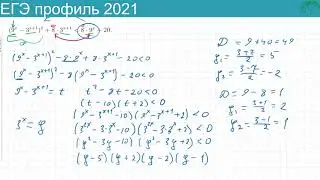 ЕГЭ профиль 2021
(9ˣ − 3ˣ⁺¹)² + 8·3ˣ⁺¹ < 8·9ˣ + 20.
(9ˣ − 3ˣ⁺¹)² − 8·9ˣ + 8·3ˣ⁺¹ − 20 < 0
(9ˣ − 3ˣ⁺¹)² − 8(9ˣ − 3ˣ⁺¹) − 20 < 0
9ˣ − 3ˣ⁺¹ = t t² − 8t − 20 < 0
(t − 10)(t + 2) < 0
(9ˣ − 3ˣ⁺¹ − 10)(9ˣ − 3ˣ⁺¹ + 2) < 0
(3²ˣ − 3·3ˣ − 10)(3²ˣ − 3·3ˣ + 2) < 0
3ˣ = y (y² − 3y − 10)(y² − 3y + 2) < 0
(y − 5)(y + 2)(y − 2)(y − 1)
D = 9 + 40 = 49
y₁ = (3+7)/2 = 5
y₂ = (3−7)/2 = −2
D = 9 − 8 = 1
y₁ = (3+1)/2 = 2
y₂ = (3−1)/2 = 1